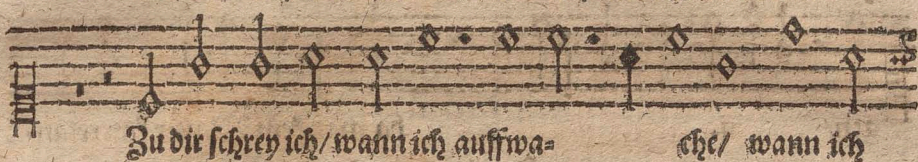 Zu dir schrey ich/ wann ich auffwa= che/ wann ich